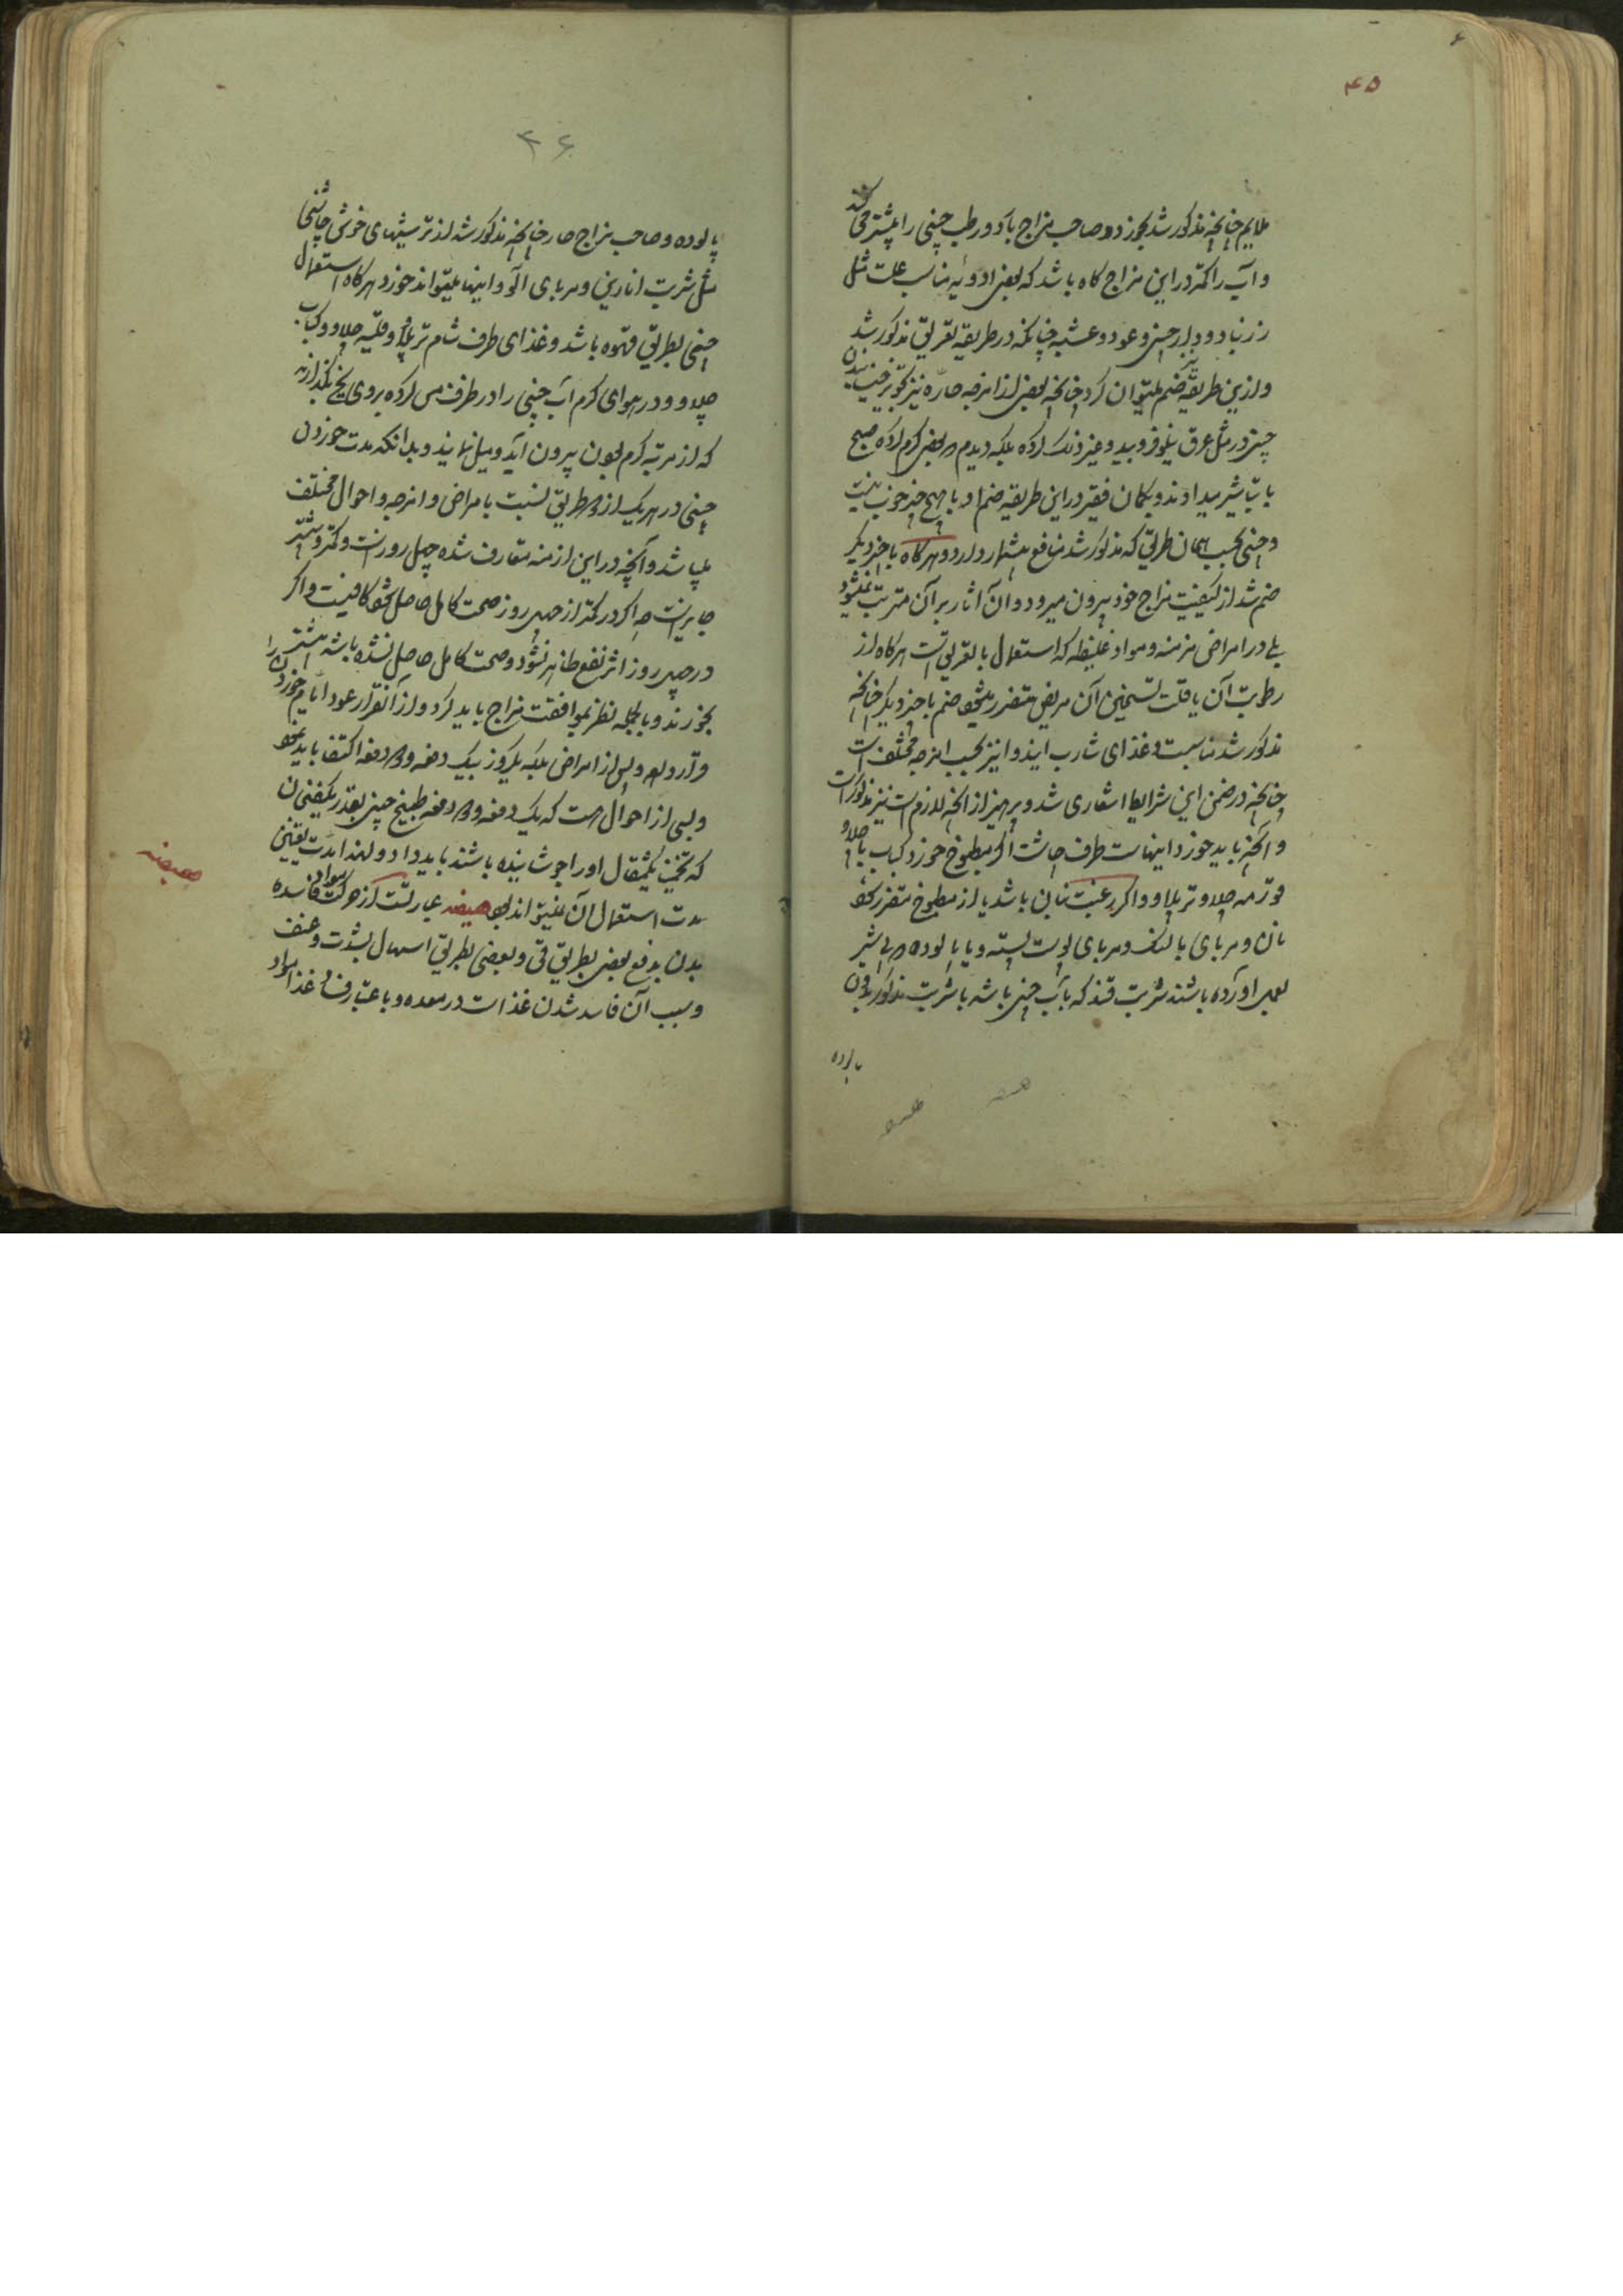 ۴۵
ملایم چنانچه مذکور شد بخورد و صاحب مزاج بارد و رطب چینی را بیشتر می کند
و آب را کمتر در این مزاج گاه باشد که بعضی ادویه مناسب علت مثل
زرنباد و دارچینی و عود و عشبه چنانکه در طریقه تعریق مذکور شد
و ازین طریقه نیز ضم میتوان کرد چنانچه بعضی از امزجه حاره نیز تجویز
چینی در مثل عرق نیلوفر و بید و غیر ذلک کرده بلکه دیدم که بعضی گرم کرده صبح
با تباشیر میدادند و بگمان فقیر در این طریقه ضم او با هیچ چیز خوب نیست
و چینی بحسب همان طریق که مذکور شد منافع بیشمار دارد و هرگاه با چیز دیگر
ضم شد از کیفیت مزاج خود بیرون میرود و آن آثار بر آن مترتب نمیشود
بلی در امراض مزمنه و مواد غلیظه که استعمال بالتعریق است هرگاه از
رطوبت آن یا قلت تسخین آن مریض متضرر میشود ضم با چیز دیگر چنانچه
مذکور شد مناسبست و غذای شارب این دوا نیز بحسب امزجه مختلف است
چنانچه در ضمن این شرایط اشعاری شد و پرهیز از آنچه لازم است نیز مذکور است
و آنچه باید خورد اینهاست طرف چاشت اگر مطبوخ خورد کباب با چلاو
قورمه چلاو و تر پلاو و اگر رغبت بنان باشد یا از مطبوخ متضرر شود
نان و مربای بالنک و مربای پوست پسته و یا پالوده که با شیر
بعمل آورده باشند شربت قند که بآب چینی باشد یا شربت مذکور بدون
پالوده
۴۶
پالوده و صاحب مزاج حار چنانچه مذکور شد از ترشیهای خوش چاشنی
مثل شربت انارین و مربای آلو و اینها میتواند خورد هرگاه استعمال
چینی بطریق قهوه باشد و غذای طرف شام تر پلاو و قلیه چلاو و کباب
چلاو و در هوای گرم آب چینی را در ظرف مس کرده بروی یخ بگذارند
که از مرتبه گرم بودن بیرون آید و میل نمایند و بدانکه مدت خوردن
چینی در هر یک از طریق نسبت بامراض و امزجه و احوال مختلف
میباشد و آنچه در این ازمنه متعارف شده چهل روز است و کمتر و بیشتر
جایز است چه اگر در کمتر از چهل روز صحت کامل حاصل شود کافیست و اگر
در چهل روز اثر نفع ظاهر نشود و صحت کامل حاصل نشده باشد بیشتر
بخورند و بالجمله نظر بموافقت مزاج باید کرد و از آنقرار عود ایام خوردن را
قرار داد و بس از امراض بلکه یکروز بیک دفعه و دو دفعه اکتفا باید نمود
و بسی از احوال هست که یک دفعه و دو دفعه طبیخ چینی بقدر یکفنجان
که تخمین یکمثقال او را جوشانیده باشند باید داد و لهذا مدت تعیین
مدت استعمال آن نمیتواند بود هیضه عبارتست از حرکت مواد فاسده
بدن بدفع بعضی بطریق قی و بعضی بطریق اسهال بشدت و عنف
و سبب آن فاسد شدن غذاست در معده و باعث فساد غذا مواد
هیضه